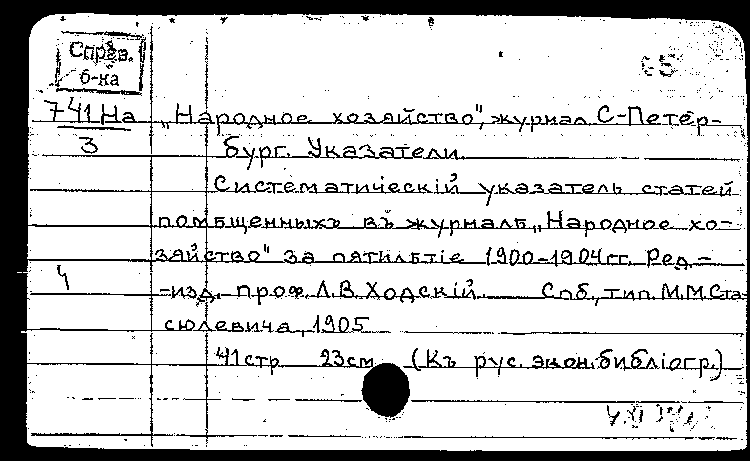 Справ.
б-ка
741 На
3
„Народное хозяйство", журнал С-Петер-
бург. Указатели.
Систематическій указатель статей
помѣщенныхъ въ журналѣ „Народное хо-
зяйство" за пятилѣтіе 1900-1904 гг. Ред.-
-изд. проф. Л.В. Ходскій. Спб., тип. М.М. Ста
сюлевича, 1905
41 стр 23 см (Къ рус. экон. библіогр.)